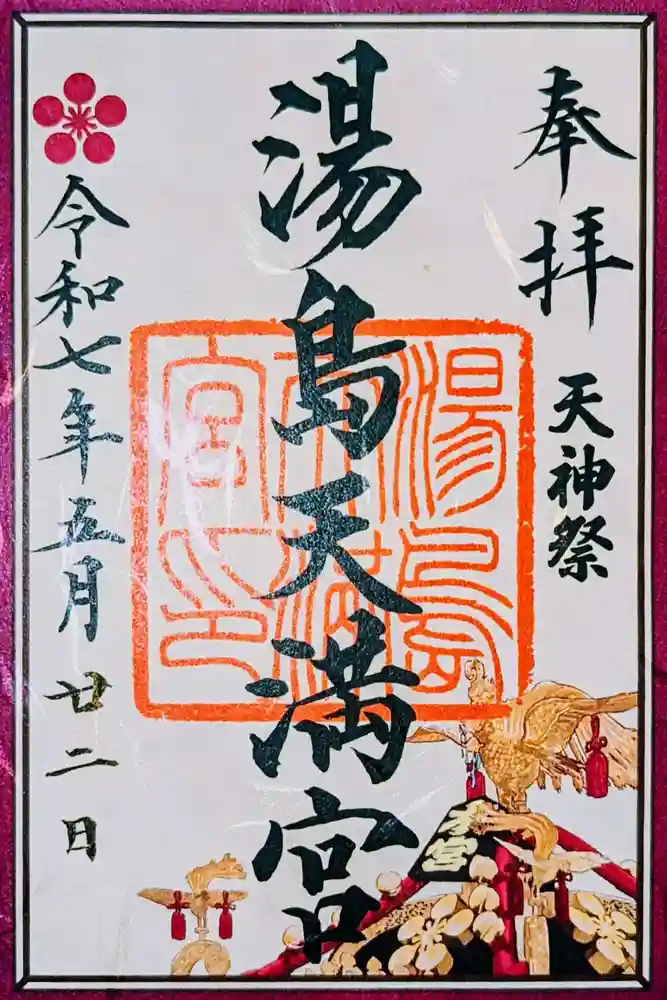 奉拝
天神祭
湯島天満宮
湯島天満宮印
本宮
令和七年五月廿二日